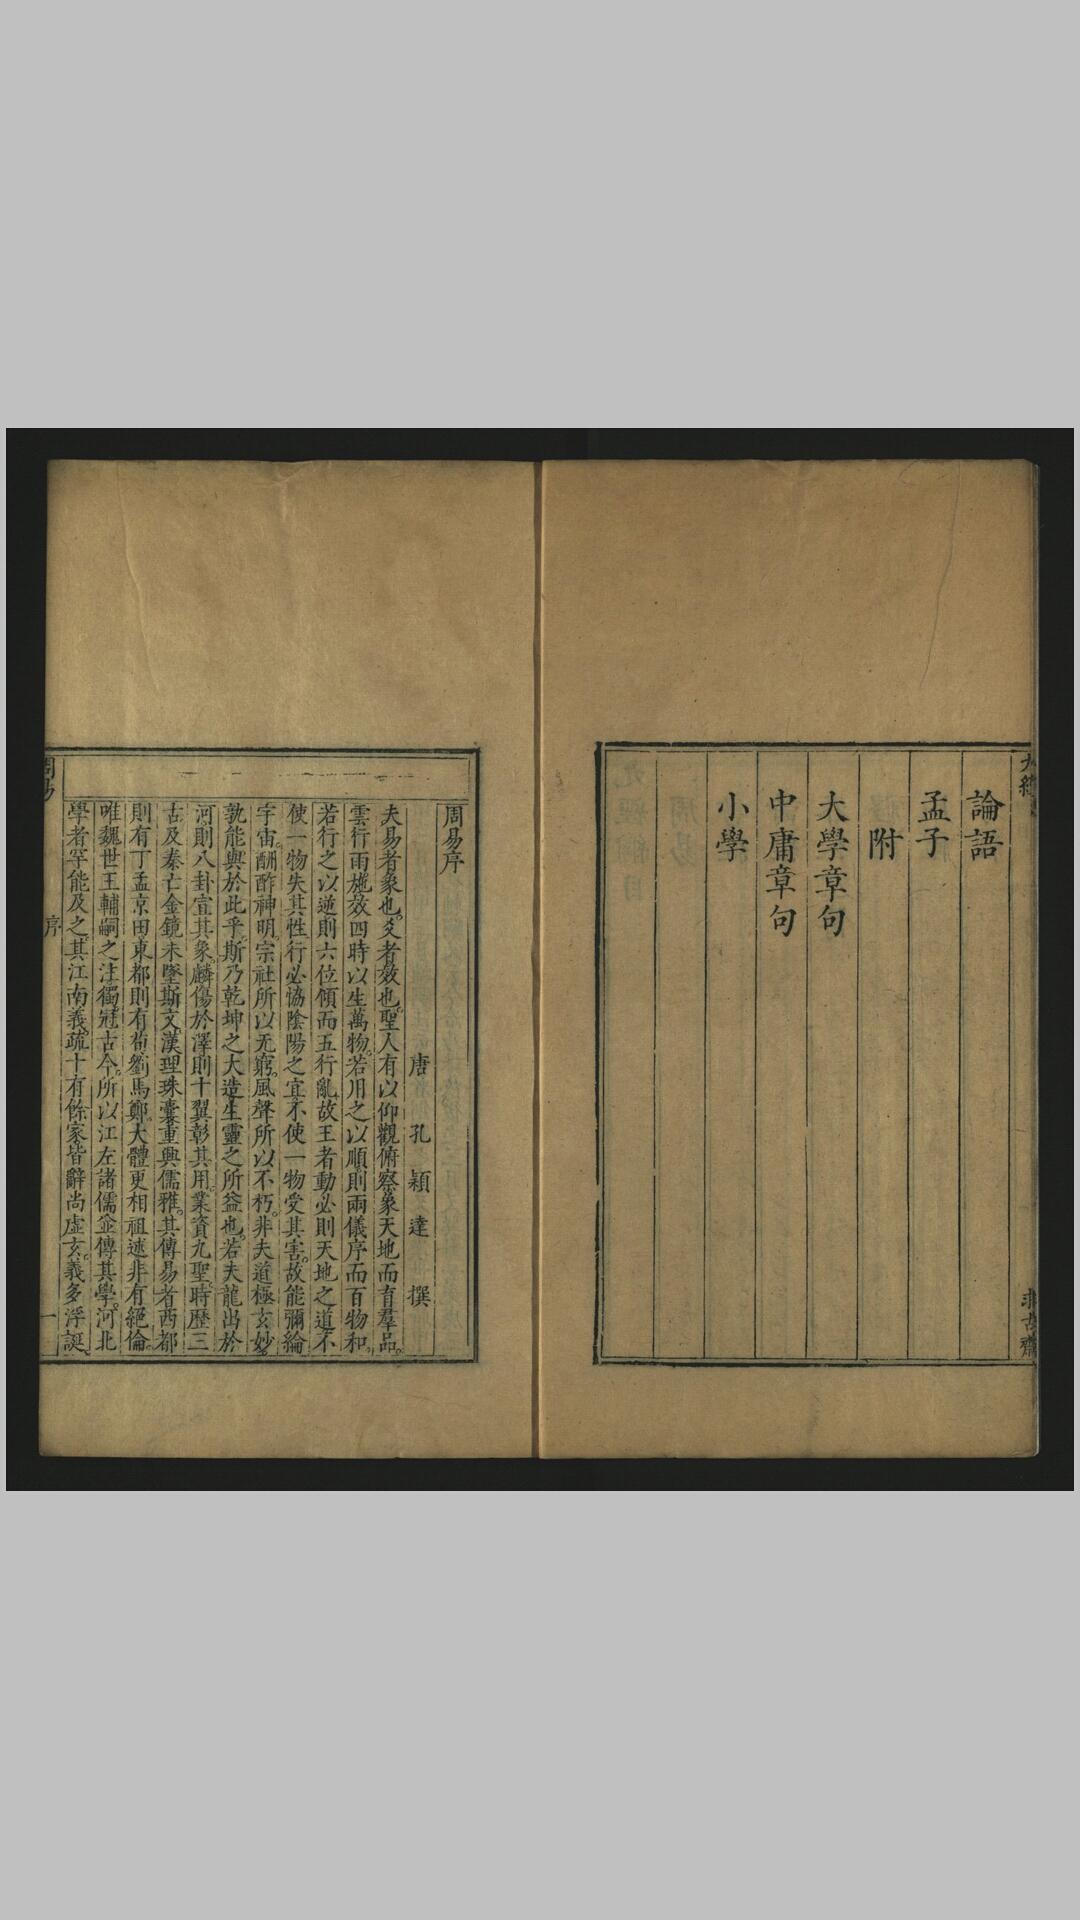 論語
孟子
附
大學章句
中庸章句
小學
求古齋
周易序
唐 孔 穎 達 撰
夫易者象也。爻者效也。聖人有以仰觀俯察。象天地而育羣品。
雲行雨施。效四時以生萬物。若用之以順。則兩儀序而百物和。
若行之以逆。則六位傾而五行亂。故王者動必則天地之道。不
使一物失其性。行必協陰陽之宜。不使一物受其害。故能彌綸
宇宙。酬酢神明。宗社所以无窮。風聲所以不朽。非夫道極玄妙。
孰能與於此乎。斯乃乾坤之大造。生靈之所益也。若夫龍出於
河。則八卦宣其象。麟傷於澤。則十翼彰其用。業資九聖。時歷三
古。及秦亡金鏡。未墜斯文。漢理珠囊。重興儒雅。其傳易者。西都
則有丁孟京田。東都則有荀劉馬鄭。大體更相祖述。非有絕倫。
唯魏世王輔嗣之注。獨冠古今。所以江左諸儒。並傳其學。河北
學者。罕能及之。其江南義疏。十有餘家。皆辭尚虛玄。義多浮誕。
周易
序
一